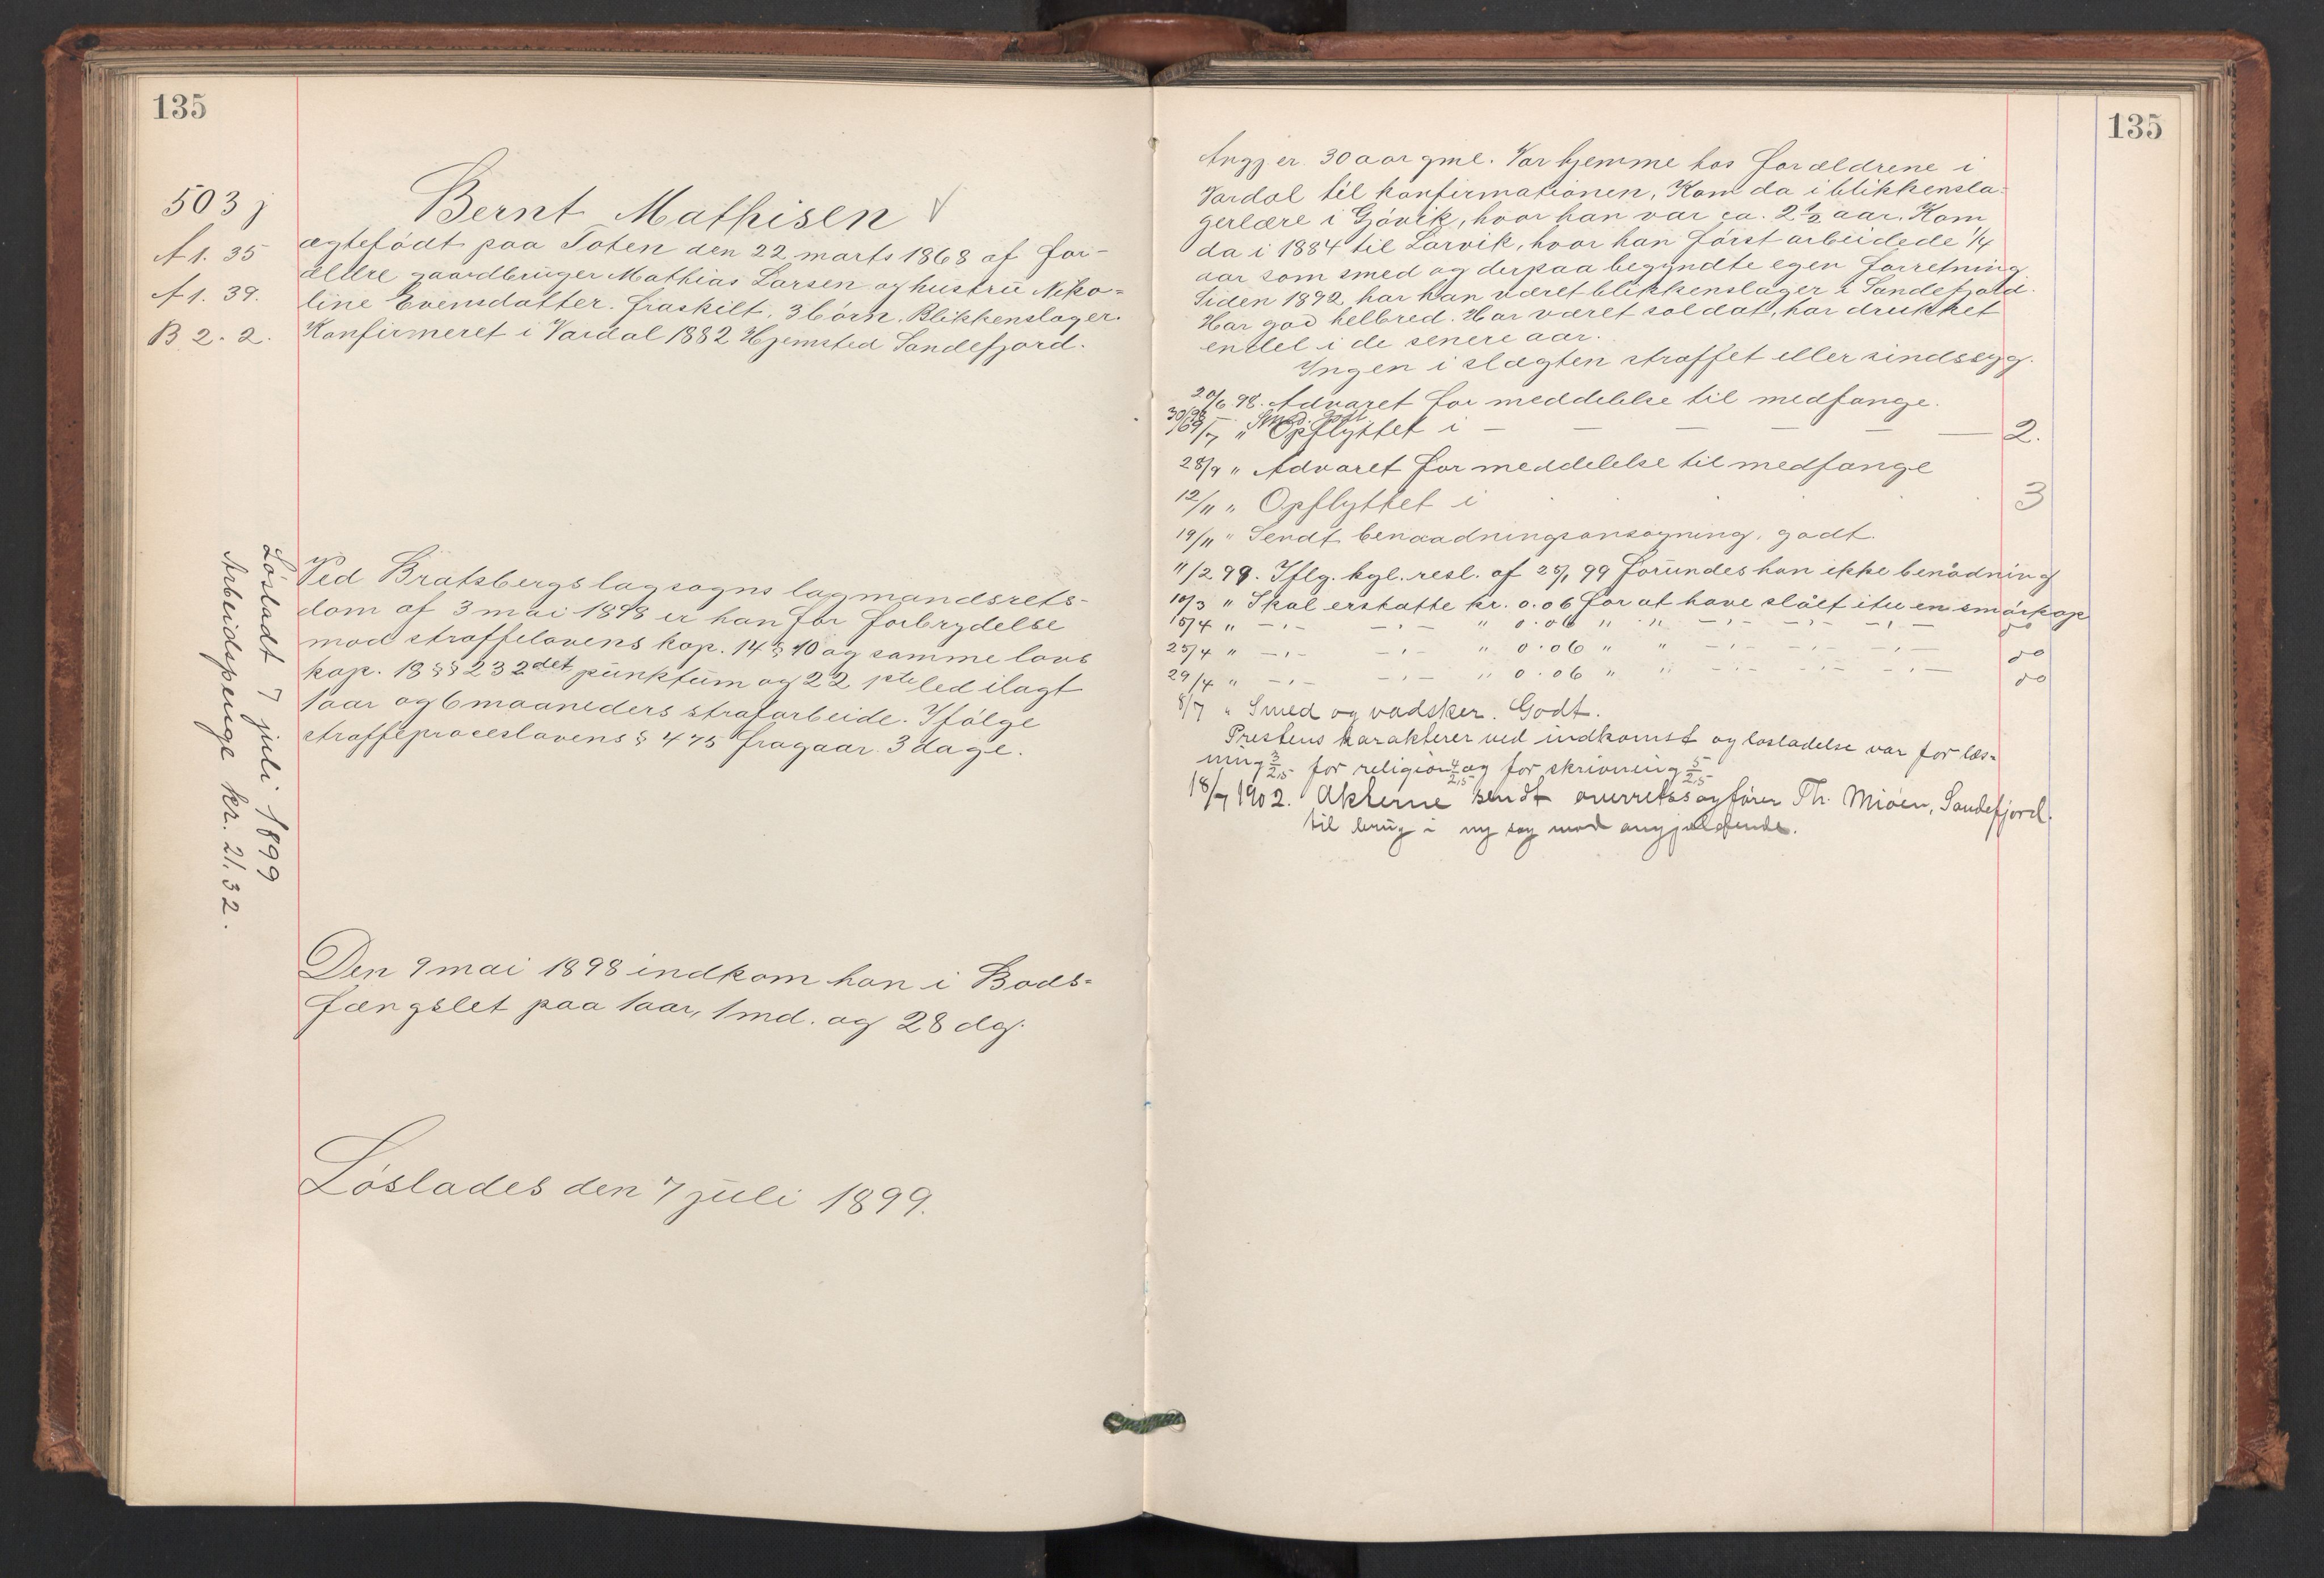 135
503 j
A 1. 35
A 1. 39.
B 2. 2.
Bernt Mathisen
ægtefødt paa Toten den 22 marts 1868 af for-
ældre gaardbruger Mathias Larsen og hustru Niko=
line Evensdatter. Fraskilt, 3 børn. Blikkenslager.
Konfirmeret i Vardal 1882 Hjemsted Sandefjord.
Ved Bratsbergs lagsogns lagmandsrets-
dom af 3 mai 1898 er han for forbrydelse
mod straffelovens kap. 14 § 10 og samme lovs
kap. 18 §§ 23 2det punktum og 22 1ste led ilagt
1 aar og 6 maaneders strafarbeide. Ifølge
straffeproceslovens § 475 fragaar 3 dage.
Løsladt 7 juli 1899
Arbeidspenge kr. 21.32.
Den 9 mai 1898 indkom han i Bods=
fængslet paa 1 aar, 1 md. og 28 dg.
Løslades den 7 juli 1899.
135
Angj er 30 aar gml. Var hjemme hos forældrene i
Vardal til konfirmationen, Kom da i blikkensla-
gerlære i Gjøvik, hvor han var ca. 2 1/2 aar. Kom
da i 1884 til Larvik, hvor han først arbeidede 1/4
aar som smed og derpaa begyndte egen forretning.
Siden 1892 har han været blikkenslager i Sandefjord.
Har god helbred. Har været soldat, har drukket
endel i de senere aar.
Ingen i slægten straffet eller sindssyg.
20/6 98. Advaret for meddelelse til medfange.
Smed. Godt.
/7 " Opflyttet i — — — — — — 2.
28/9 " Advaret for meddelelse til medfange
12/11 " Opflyttet i . . . . 3
19/11 " Sendt benaadningsansøgning, godt.
11/2 99. Iflg. kgl. resl. af 25/1 99 forundes han ikke benådning
10/3 " Skal erstatte kr. 0.06 for at have slået itu en smørkop
15/4 " —"— —"— " 0.06 " " —"— —"— —"— do
25/4 " —"— —"— " 0.06 " " —"— —"— —"— do
29/4 " —"— —"— " 0.06 " " —"— —"— —"— do
8/7 " Smed og vadsker. Godt.
Prestens karakterer ved indkomst og løsladelse var for læs=
ning 3/2,5 for religion 4/2,5 og for skrivning 5/2,5
18/7 1902. Akterne sendt overretssagfører Th. Mioen, Sandefjord.
til brug i ny sag mod angjældende.